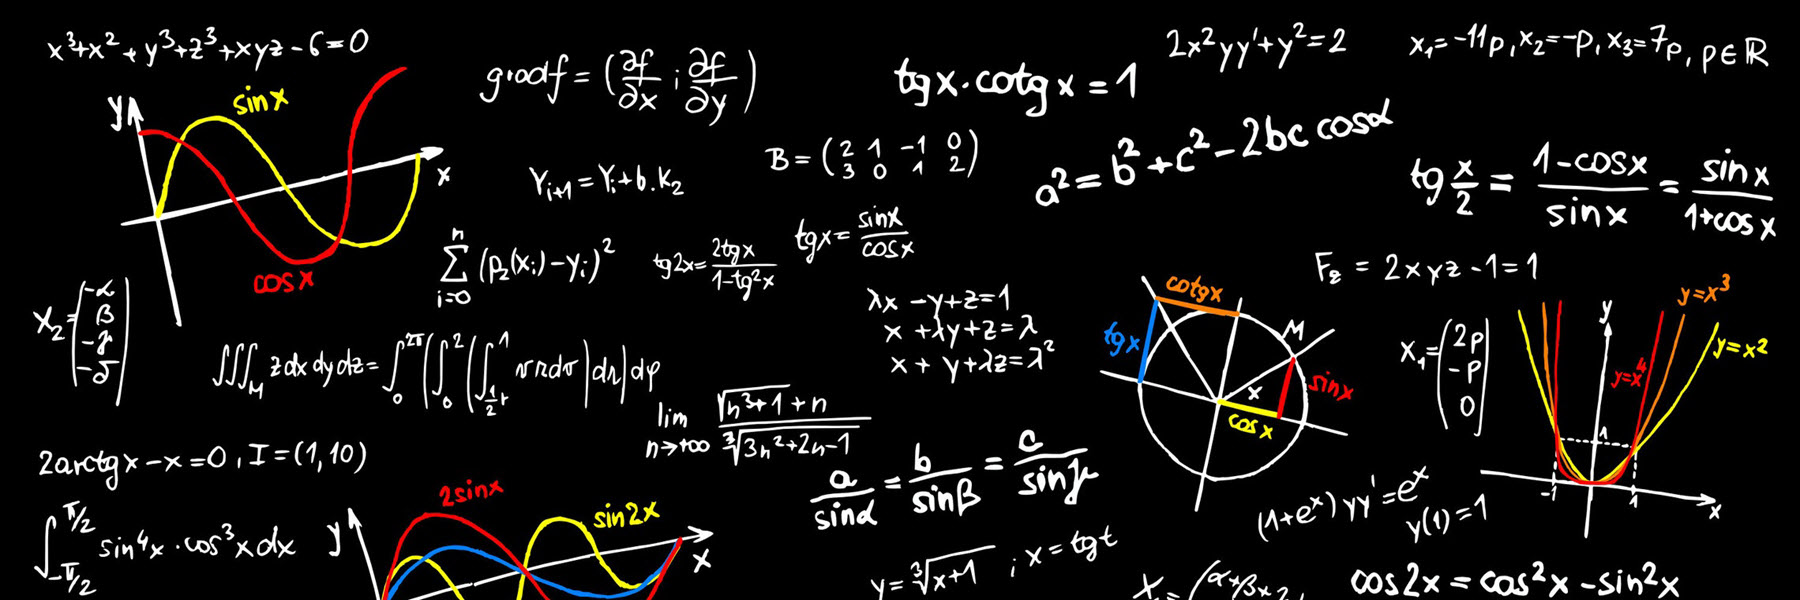 x³+x²+y³+z³+xyz-6=0
y
sinx
x
cosx
gradf = (∂f/∂x ; ∂f/∂y)
tgx·cotgx = 1
2x²yy'+y²=2
x₁=-11p, x₂=-p, x₃=7p, p∈ℝ
Y_{i+1} = Y_i + b.K₂
B = (2 1 -1 0
3 0 1 2)
a² = b² + c² - 2bc cosα
tg x/2 = 1-cosx/sinx = sinx/1+cosx
Σ_{i=0}^{n} (p₂(x_i)-y_i)²
tg2x = 2tgx/1-tg²x
tgx = sinx/cosx
F₂ = 2xyz-1=1
X₂ = (-α
β
-γ
-δ)
λx -y+z=1
x +λy+z=λ
x + y+λz=λ²
cotgx
tgx
M
x
sinx
cosx
X₁ = (2p
-p
0)
y
y=x³
y=x²
y=x⁴
1
-1
1
x
∭_M z dx dy dz =
lim_{n→+∞} √(n³+1)+n / ∛(3n²+2n-1)
2arctgx-x=0, I=(1,10)
a/sinα = b/sinβ = c/sinγ
(1+eˣ)yy'=eˣ
y(1)=1
∫_{-π/2}^{π/2} sin⁴x·cos³x dx
y
2sinx
sin2x
x
y = ∛(x+1) ; x = tgt
cos2x = cos²x-sin²x